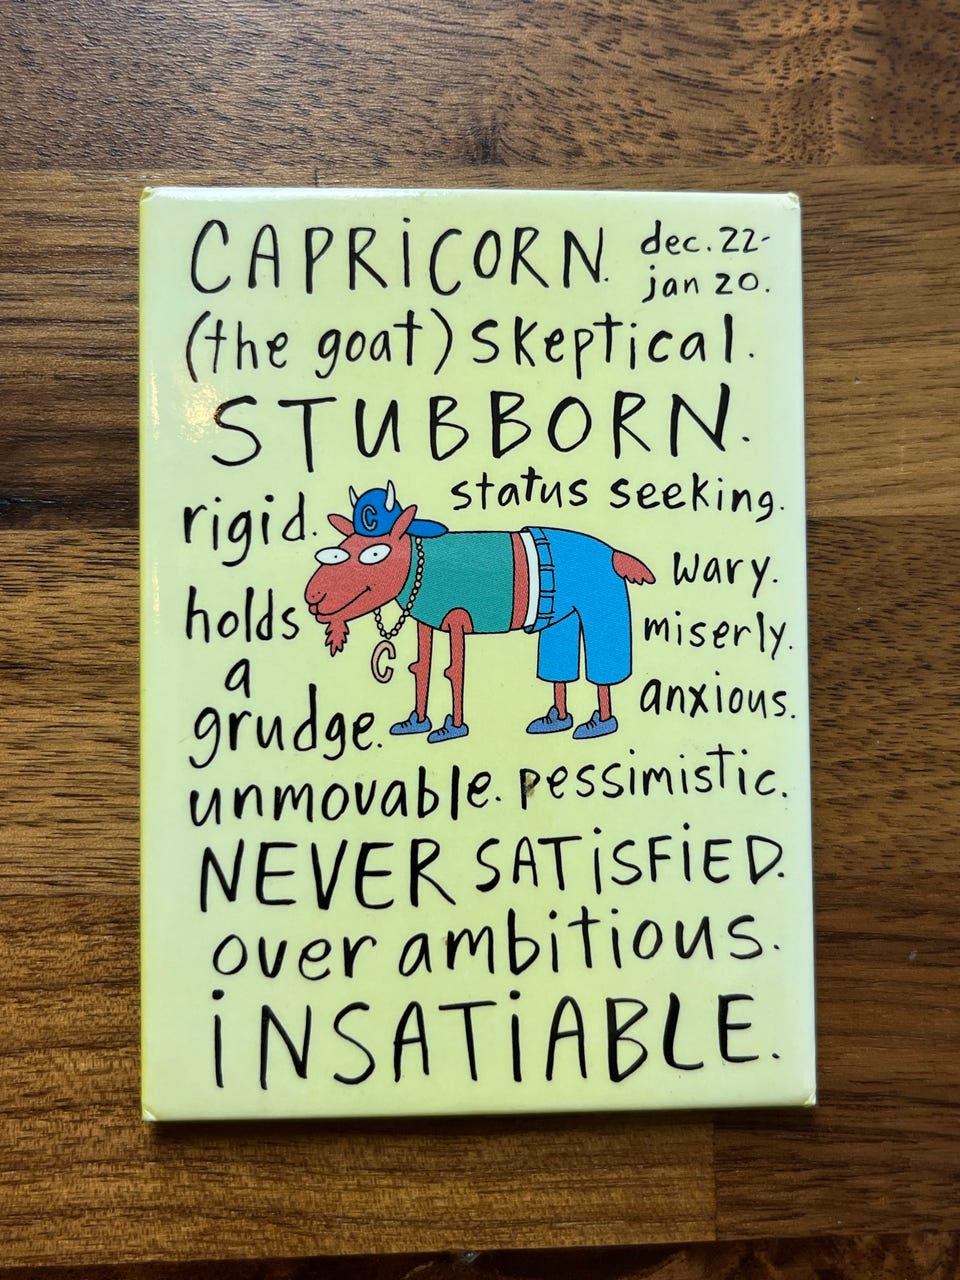 CAPRiCORN. dec. 22-
jan 20.
(the goat) skeptical.
STUBBORN.
status seeking.
rigid.
C
wary.
holds
miserly.
a
C
anxious.
grudge.
unmovable. pessimistic.
NEVER SATiSFiED.
over ambitious.
iNSATiABLE.